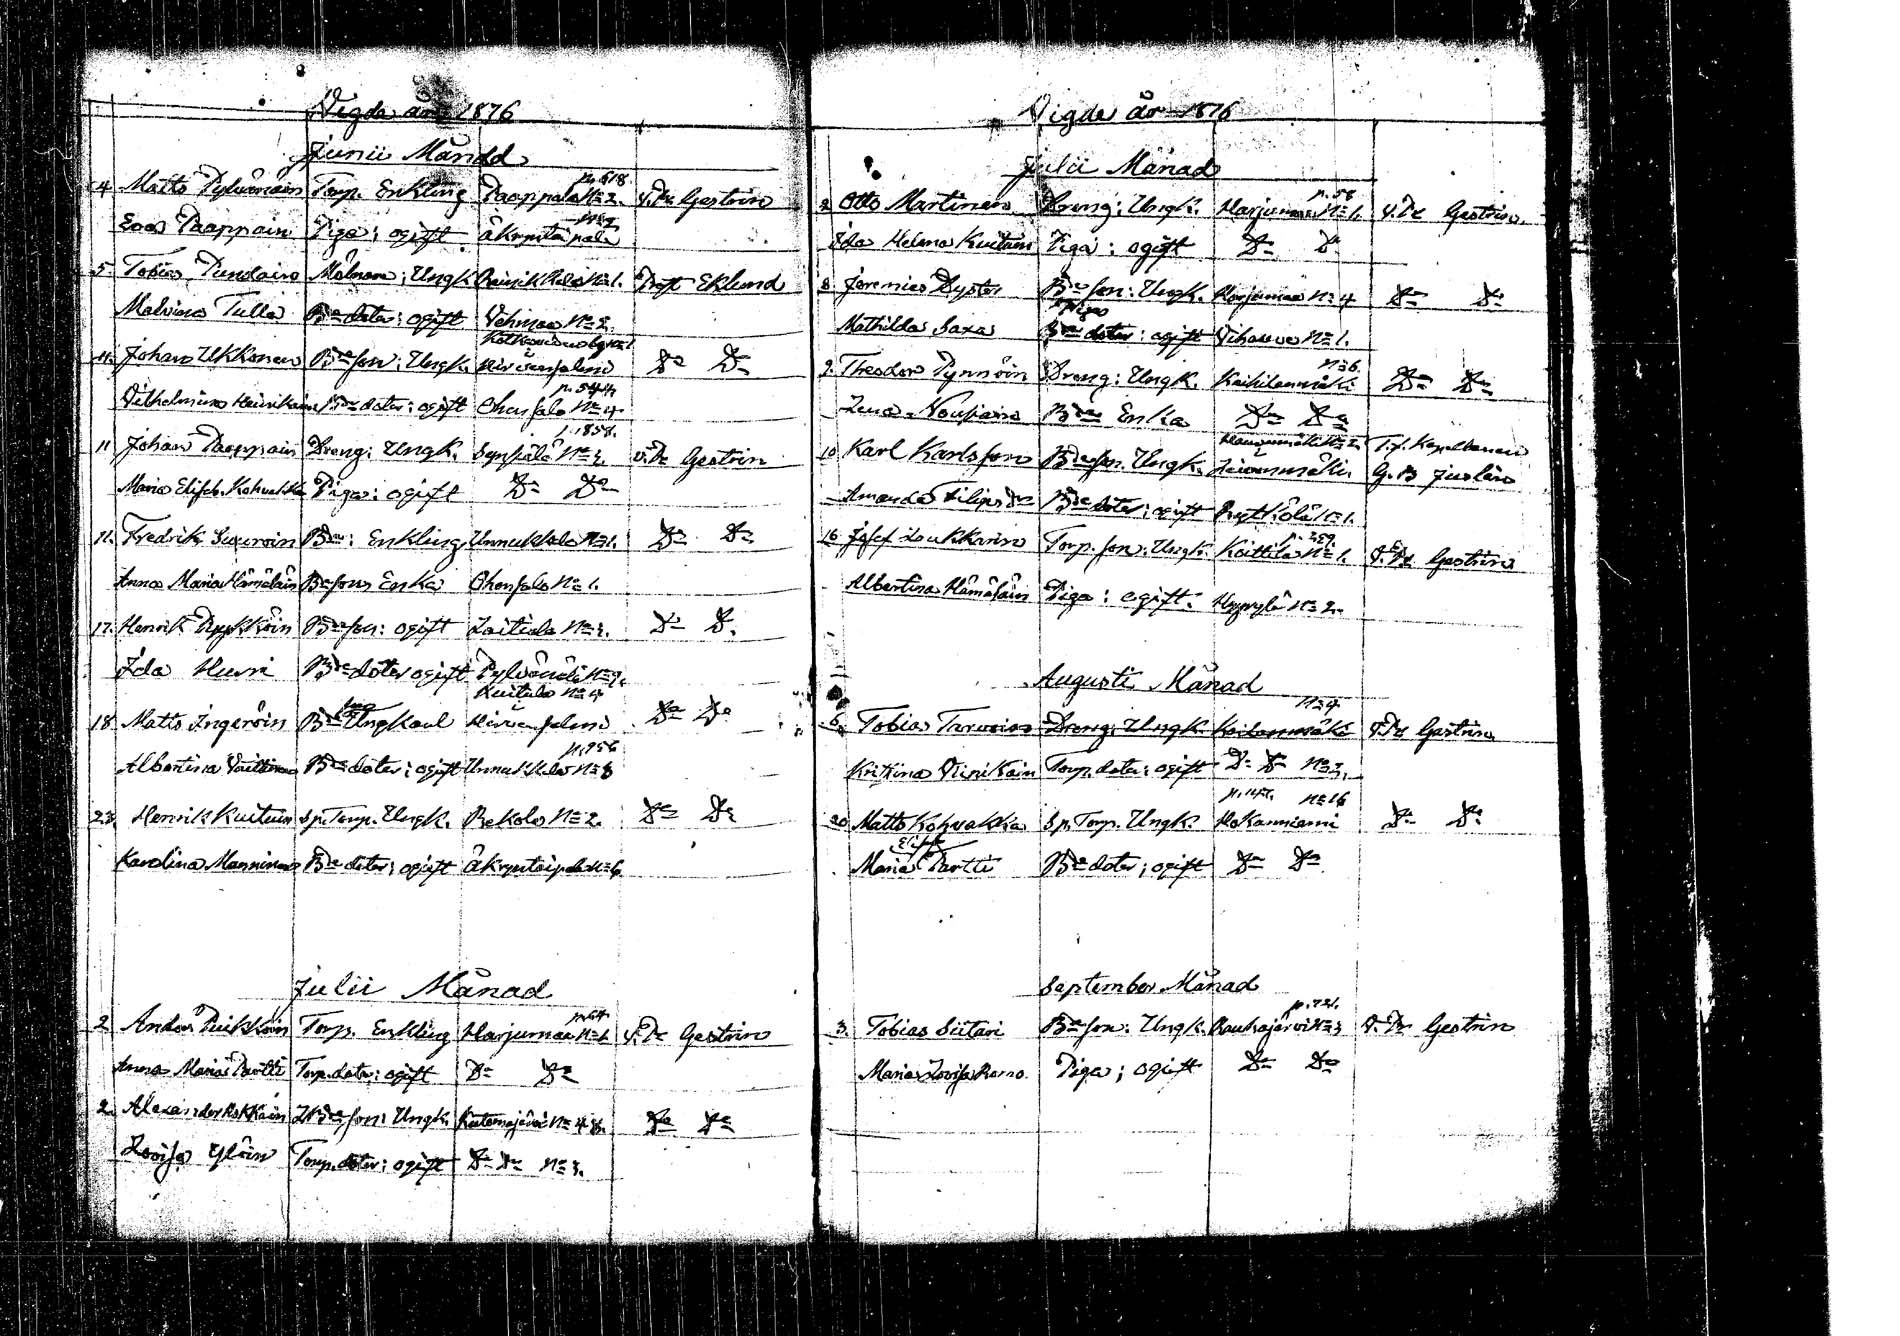 Vigda år 1876
Junii Månad
4 Matts Pylvänäin Torp. Enkling Paappala N=2. p. 618 V.Pr Gestrin
Eva Paappain Piga; ogift Äkryntaipale
5 Tobias Pundain Ungk. N=1. Past Eklund
Malvina Tulla Bde doter; ogift Vehmaa N=2.
11. Johan Ukkonen Bde son; Ungk. Hirvensalmi Do Do
Vilhelmina Heinikain Bde doter; ogift Ohensalo N=4. p. 544
11 Johan Paappain Dreng; Ungk. Synsiälä N=2. p. 1858. V.Pr Gestrin
Maria Elisab. Kohvakka Piga; ogift Do Do
11. Fredrik Bde: Enkling Unnukkala N=1. Do Do
Anna Maria Hämäläin Bde sons Enka Ohensalo N=1.
17. Henrik Pykköin Bde son: ogift Laitiala N=2. Do Do
Ida Hurri Bde doter ogift Pylvänälä N=2.
18. Matts Ingeröin Bde son Ungkarl Kuitula N=4 Hirvensalmi Do Do
Albertina Vaittinen Bde doter; ogift Unnukkala N=8 p. 956
23. Henrik Kuituin sp. Torp. Ungk. Rekola N=2. Do Do
Karolina Manninen Bde doter; ogift Äkryntaipale N=6
Julii Månad
2 Anders Puikkoin Torp. Enkling Harjumaa N=1. p. 64 V.Pr Gestrin
Anna Maria Partti Torp. doter; ogift Do Do
2 Alexander Kokkain Bde son: Ungk. N=4 Do Do
Lovisa Ylöin Torp. doter; ogift Do Do N=3.
Vigde år 1876
Julii Månad
2 Otto Martinen Dreng; Ungk. Harjumaa N=1. p. 58 V.Pr Gestrin.
Ida Helena Kuituin Piga: ogift Do Do
8 Jeremias Dyster Bde son: Ungk. Harjumaa N=4 Do Do
Mathilda Saxa Piga Bde doter: ogift Vihavuo N=1.
9. Theodor Pynnöin Dreng: Ungk. Kaihilanmäki N=6. Do Do
Lena Noupain Bdes Enka Do Do
10 Karl Karlsson Bde son. Ungk. T.f. Kapellanen G. B. Juslen
Amanda Filips Dr Bde doter; ogift N=1.
16 Josef Loukkarin Torp. son. Ungk. Koittila N=1. V.Pr Gestrin
Albertina Hämäläin Piga: ogift. Hyyrylä N=2.
Augusti Månad
6. Tobias Tarvain Dreng; Ungk. Kailanmäki N=4 V.Pr Gestrin
Kristina Vinikain Torp. doter; ogift Do Do N=3.
20 Matts Kohvakka sp. Torp. Ungk. Kokanniemi p. 147. N=16 Do Do
Maria Elisab. Partti Bde doter; ogift Do Do
September Månad
3. Tobias Siitari Bde son. Ungk. Raukajärvi N=3 p. 721. V.Pr Gestrin
Maria Lovisa Romo Piga; ogift Do Do